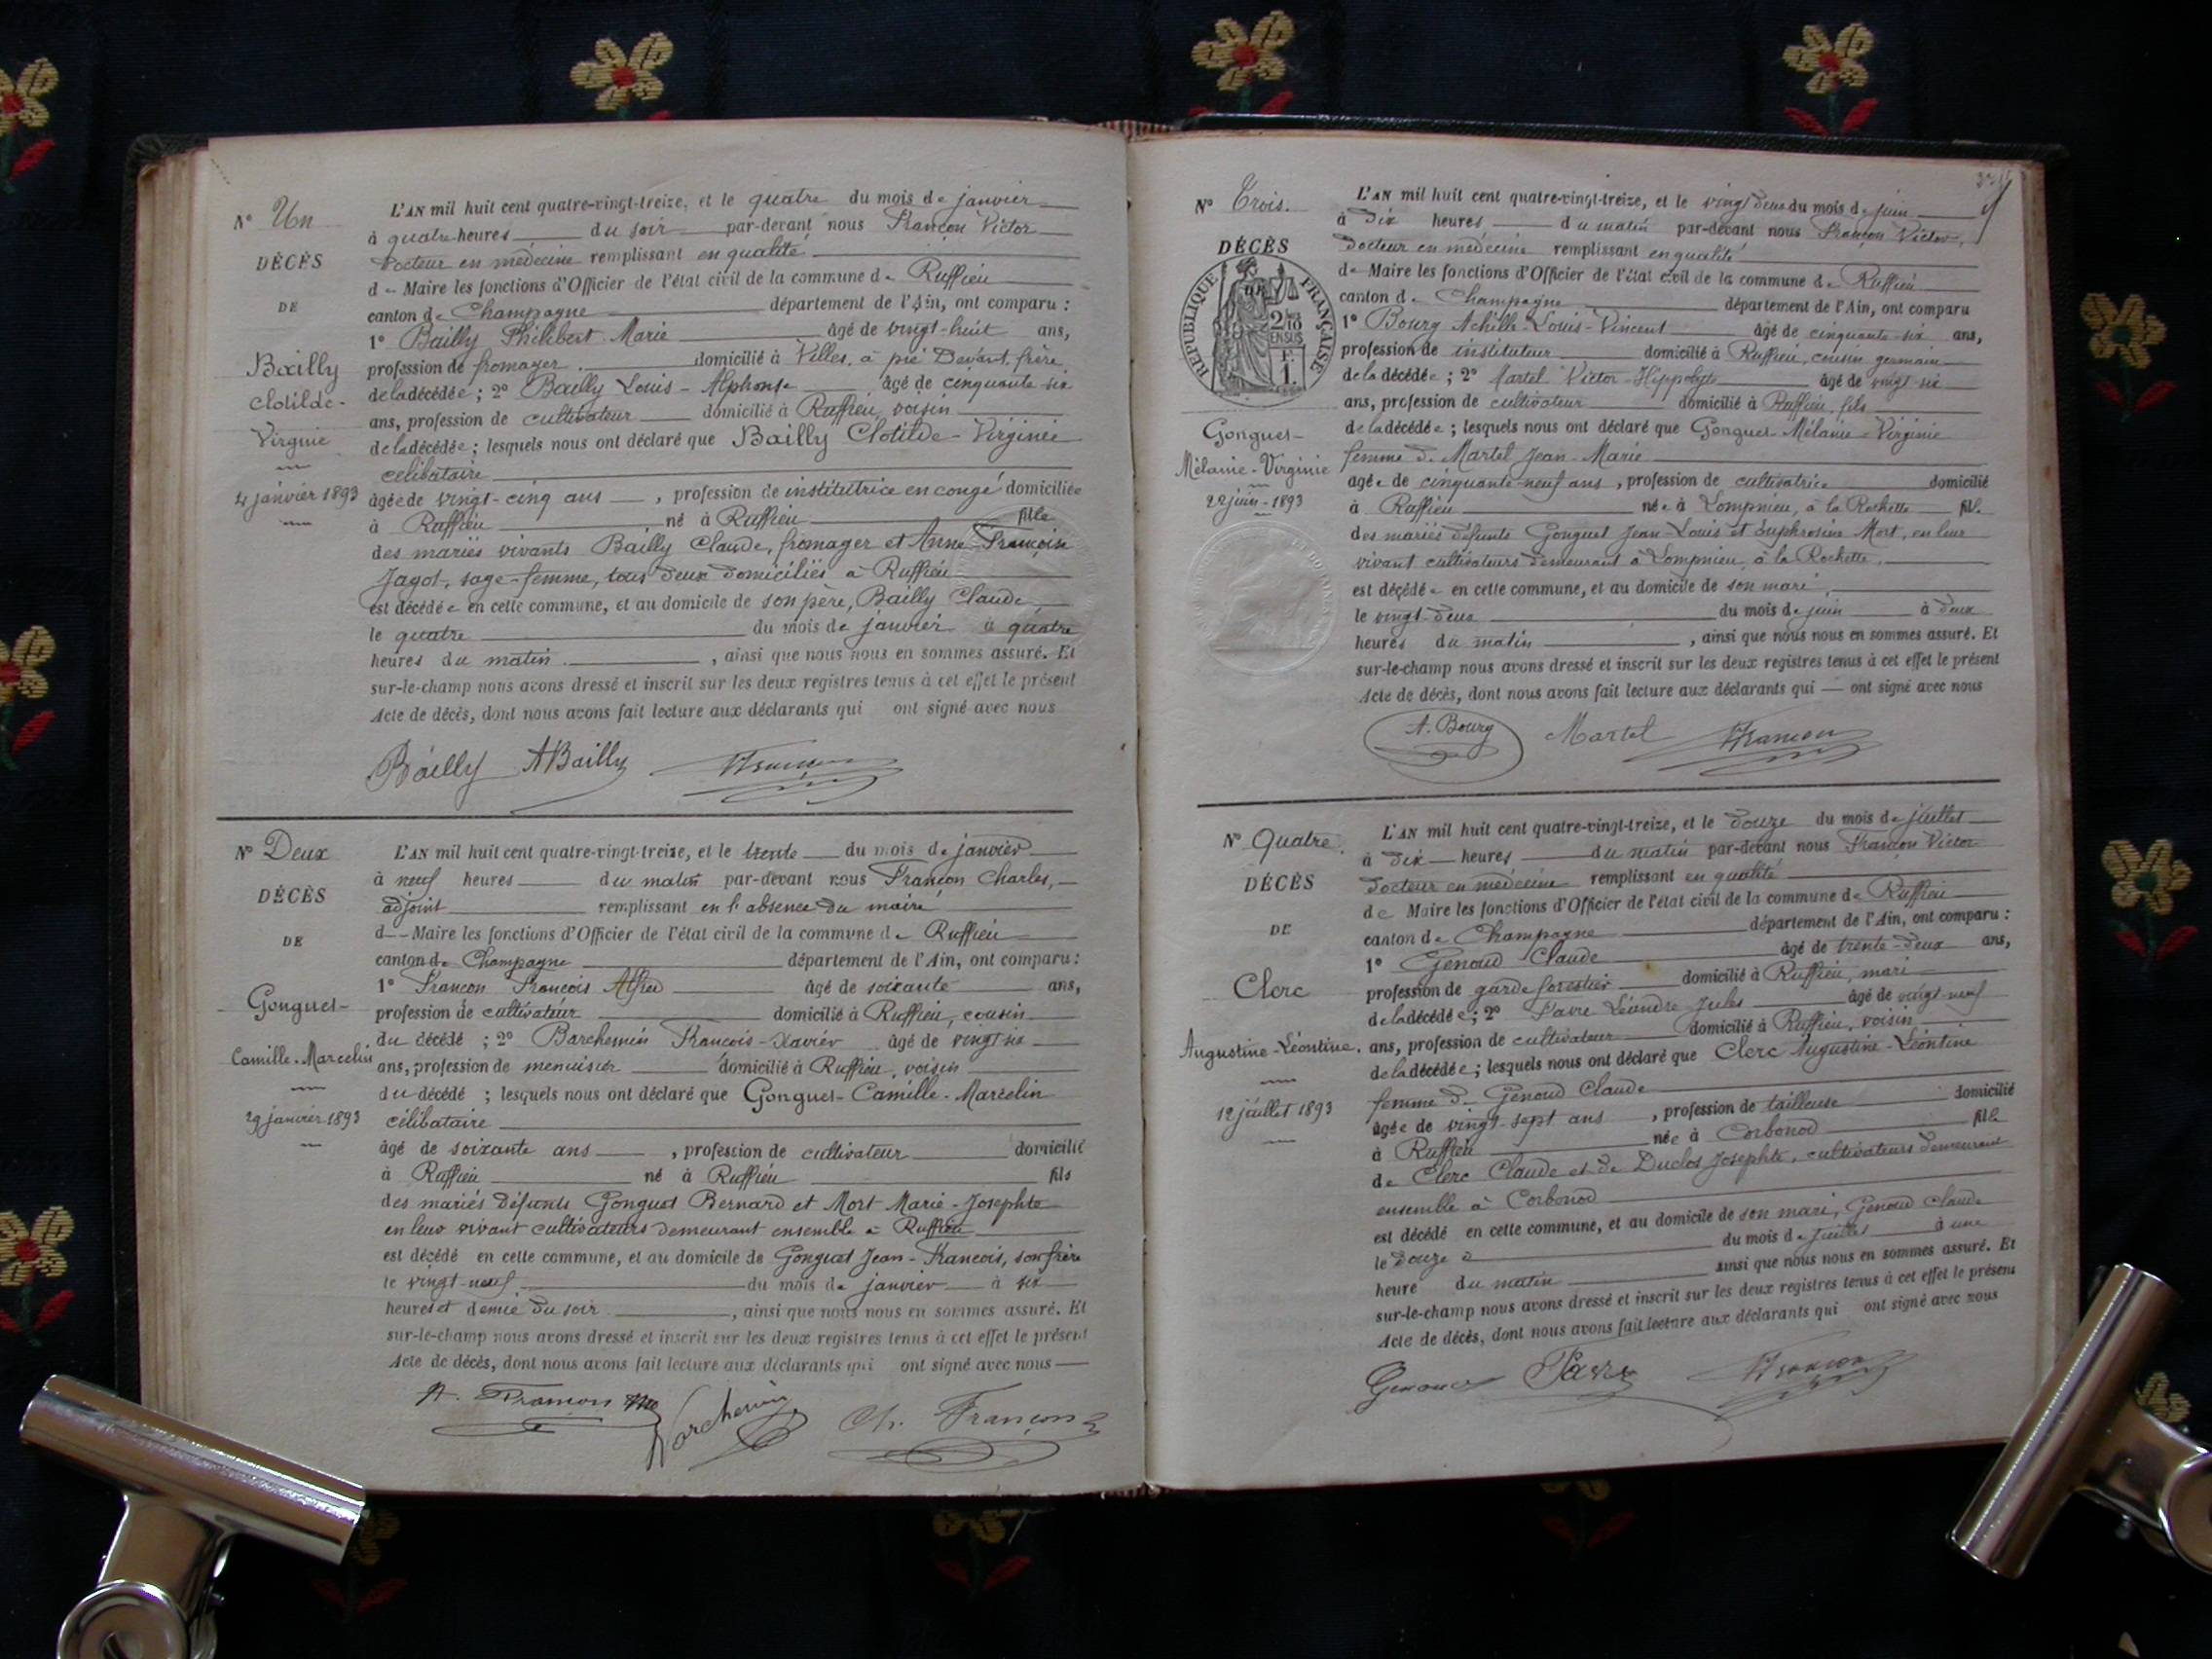 N° Un
DÉCÈS
DE
Bailly
Clotilde-
Virginie
4 janvier 1893
L'AN mil huit cent quatre-vingt-treize, et le quatre du mois de janvier
à quatre heures du soir par-devant nous Françon Victor
docteur en médecine remplissant en qualité
de Maire les fonctions d'Officier de l'état civil de la commune de Ruffieu
canton de Champagne département de l'Ain, ont comparu :
1° Bailly Philibert Marie âgé de vingt-huit ans,
profession de fromager domicilié à Villes, à pié Devant, frère
de la décédée ; 2° Bailly Louis-Alphonse âgé de cinquante six
ans, profession de cultivateur domicilié à Ruffieu, voisin
de la décédée ; lesquels nous ont déclaré que Bailly Clotilde-Virginie
célibataire
âgée de vingt-cinq ans, profession de institutrice en congé domiciliée
à Ruffieu né à Ruffieu fille
des mariés vivants Bailly Claude, fromager et Anne-Françoise
Jagot, sage-femme, tous deux domiciliés à Ruffieu
est décédée en cette commune, et au domicile de son père, Bailly Claude,
le quatre du mois de janvier à quatre
heures du matin, ainsi que nous nous en sommes assuré. Et
sur-le-champ nous avons dressé et inscrit sur les deux registres tenus à cet effet le présent
Acte de décès, dont nous avons fait lecture aux déclarants qui ont signé avec nous
Bailly ABailly VFrançon
N° Deux
DÉCÈS
DE
Gonguet-
Camille-Marcelin
29 janvier 1893
L'AN mil huit cent quatre-vingt-treize, et le trente du mois de janvier
à neuf heures du matin par-devant nous Françon Charles,
adjoint remplissant en l'absence du maire
d--Maire les fonctions d'Officier de l'état civil de la commune de Ruffieu
canton de Champagne département de l'Ain, ont comparu :
1° Françon François Alfred âgé de soixante ans,
profession de cultivateur domicilié à Ruffieu, cousin
du décédé ; 2° Barchemin François-Xavier âgé de vingt six
ans, profession de menuisier domicilié à Ruffieu, voisin
du décédé ; lesquels nous ont déclaré que Gonguet-Camille-Marcelin
célibataire
âgé de soixante ans, profession de cultivateur domicilié
à Ruffieu né à Ruffieu fils
des mariés défunts Gonguet Bernard et Mort Marie-Josephte
en leur vivant cultivateurs demeurant ensemble à Ruffieu
est décédé en cette commune, et au domicile de Gonguet Jean-François, son frère
le vingt-neuf du mois de janvier à six
heures et demie du soir, ainsi que nous nous en sommes assuré. Et
sur-le-champ nous avons dressé et inscrit sur les deux registres tenus à cet effet le présent
Acte de décès, dont nous avons fait lecture aux déclarants qui ont signé avec nous
A. Françon Barchemin Ch. Françon
N° Trois.
DÉCÈS
RÉPUBLIQUE FRANÇAISE
2/10
EN SUS
1 F.
Gonguet-
Mélanie-Virginie
22 juin-1893
L'AN mil huit cent quatre-vingt-treize, et le vingt deux du mois de juin
à dix heures du matin par-devant nous Françon Victor,
docteur en médecine remplissant en qualité
de Maire les fonctions d'Officier de l'état civil de la commune de Ruffieu
canton de Champagne département de l'Ain, ont comparu
1° Bourg Achille-Louis-Vincent âgé de cinquante-six ans,
profession de instituteur domicilié à Ruffieu, cousin germain
de la décédée ; 2° Martel Victor-Hippolyte âgé de vingt six
ans, profession de cultivateur domicilié à Ruffieu, fils
de la décédée ; lesquels nous ont déclaré que Gonguet-Mélanie-Virginie
femme de Martel Jean-Marie
âgée de cinquante neuf ans, profession de cultivatrice domicilié
à Ruffieu née à Lompnieu, à la Rochette fille
des mariés défunts Gonguet Jean-Louis et Euphrosine Mort, en leur
vivant cultivateurs demeurant à Lompnieu, à la Rochette,
est décédée en cette commune, et au domicile de son mari,
le vingt-deux du mois de juin à deux
heures du matin, ainsi que nous nous en sommes assuré. Et
sur-le-champ nous avons dressé et inscrit sur les deux registres tenus à cet effet le présent
Acte de décès, dont nous avons fait lecture aux déclarants qui — ont signé avec nous
A. Bourg Martel VFrançon
N° Quatre.
DÉCÈS
DE
Clerc
Augustine-Léontine.
12 juillet 1893
L'AN mil huit cent quatre-vingt-treize, et le douze du mois de juillet
à dix heures du matin par-devant nous Françon Victor
docteur en médecine remplissant en qualité
de Maire les fonctions d'Officier de l'état civil de la commune de Ruffieu
canton de Champagne département de l'Ain, ont comparu :
1° Genoud Claude âgé de trente-deux ans,
profession de garde forestier domicilié à Ruffieu, mari
de la décédée ; 2° Favre Léandre Jules âgé de vingt-neuf
ans, profession de cultivateur domicilié à Ruffieu, voisin
de la décédée ; lesquels nous ont déclaré que Clerc Augustine-Léontine
femme de Genoud Claude
âgée de vingt-sept ans, profession de tailleuse domicilié
à Ruffieu née à Corbonod fille
de Clerc Claude et de Duclos Josephte, cultivateurs demeurant
ensemble à Corbonod
est décédé en cette commune, et au domicile de son mari, Genoud Claude
le douze du mois de juillet à une
heure du matin ainsi que nous nous en sommes assuré. Et
sur-le-champ nous avons dressé et inscrit sur les deux registres tenus à cet effet le présent
Acte de décès, dont nous avons fait lecture aux déclarants qui ont signé avec nous
Genoud Favre VFrançon